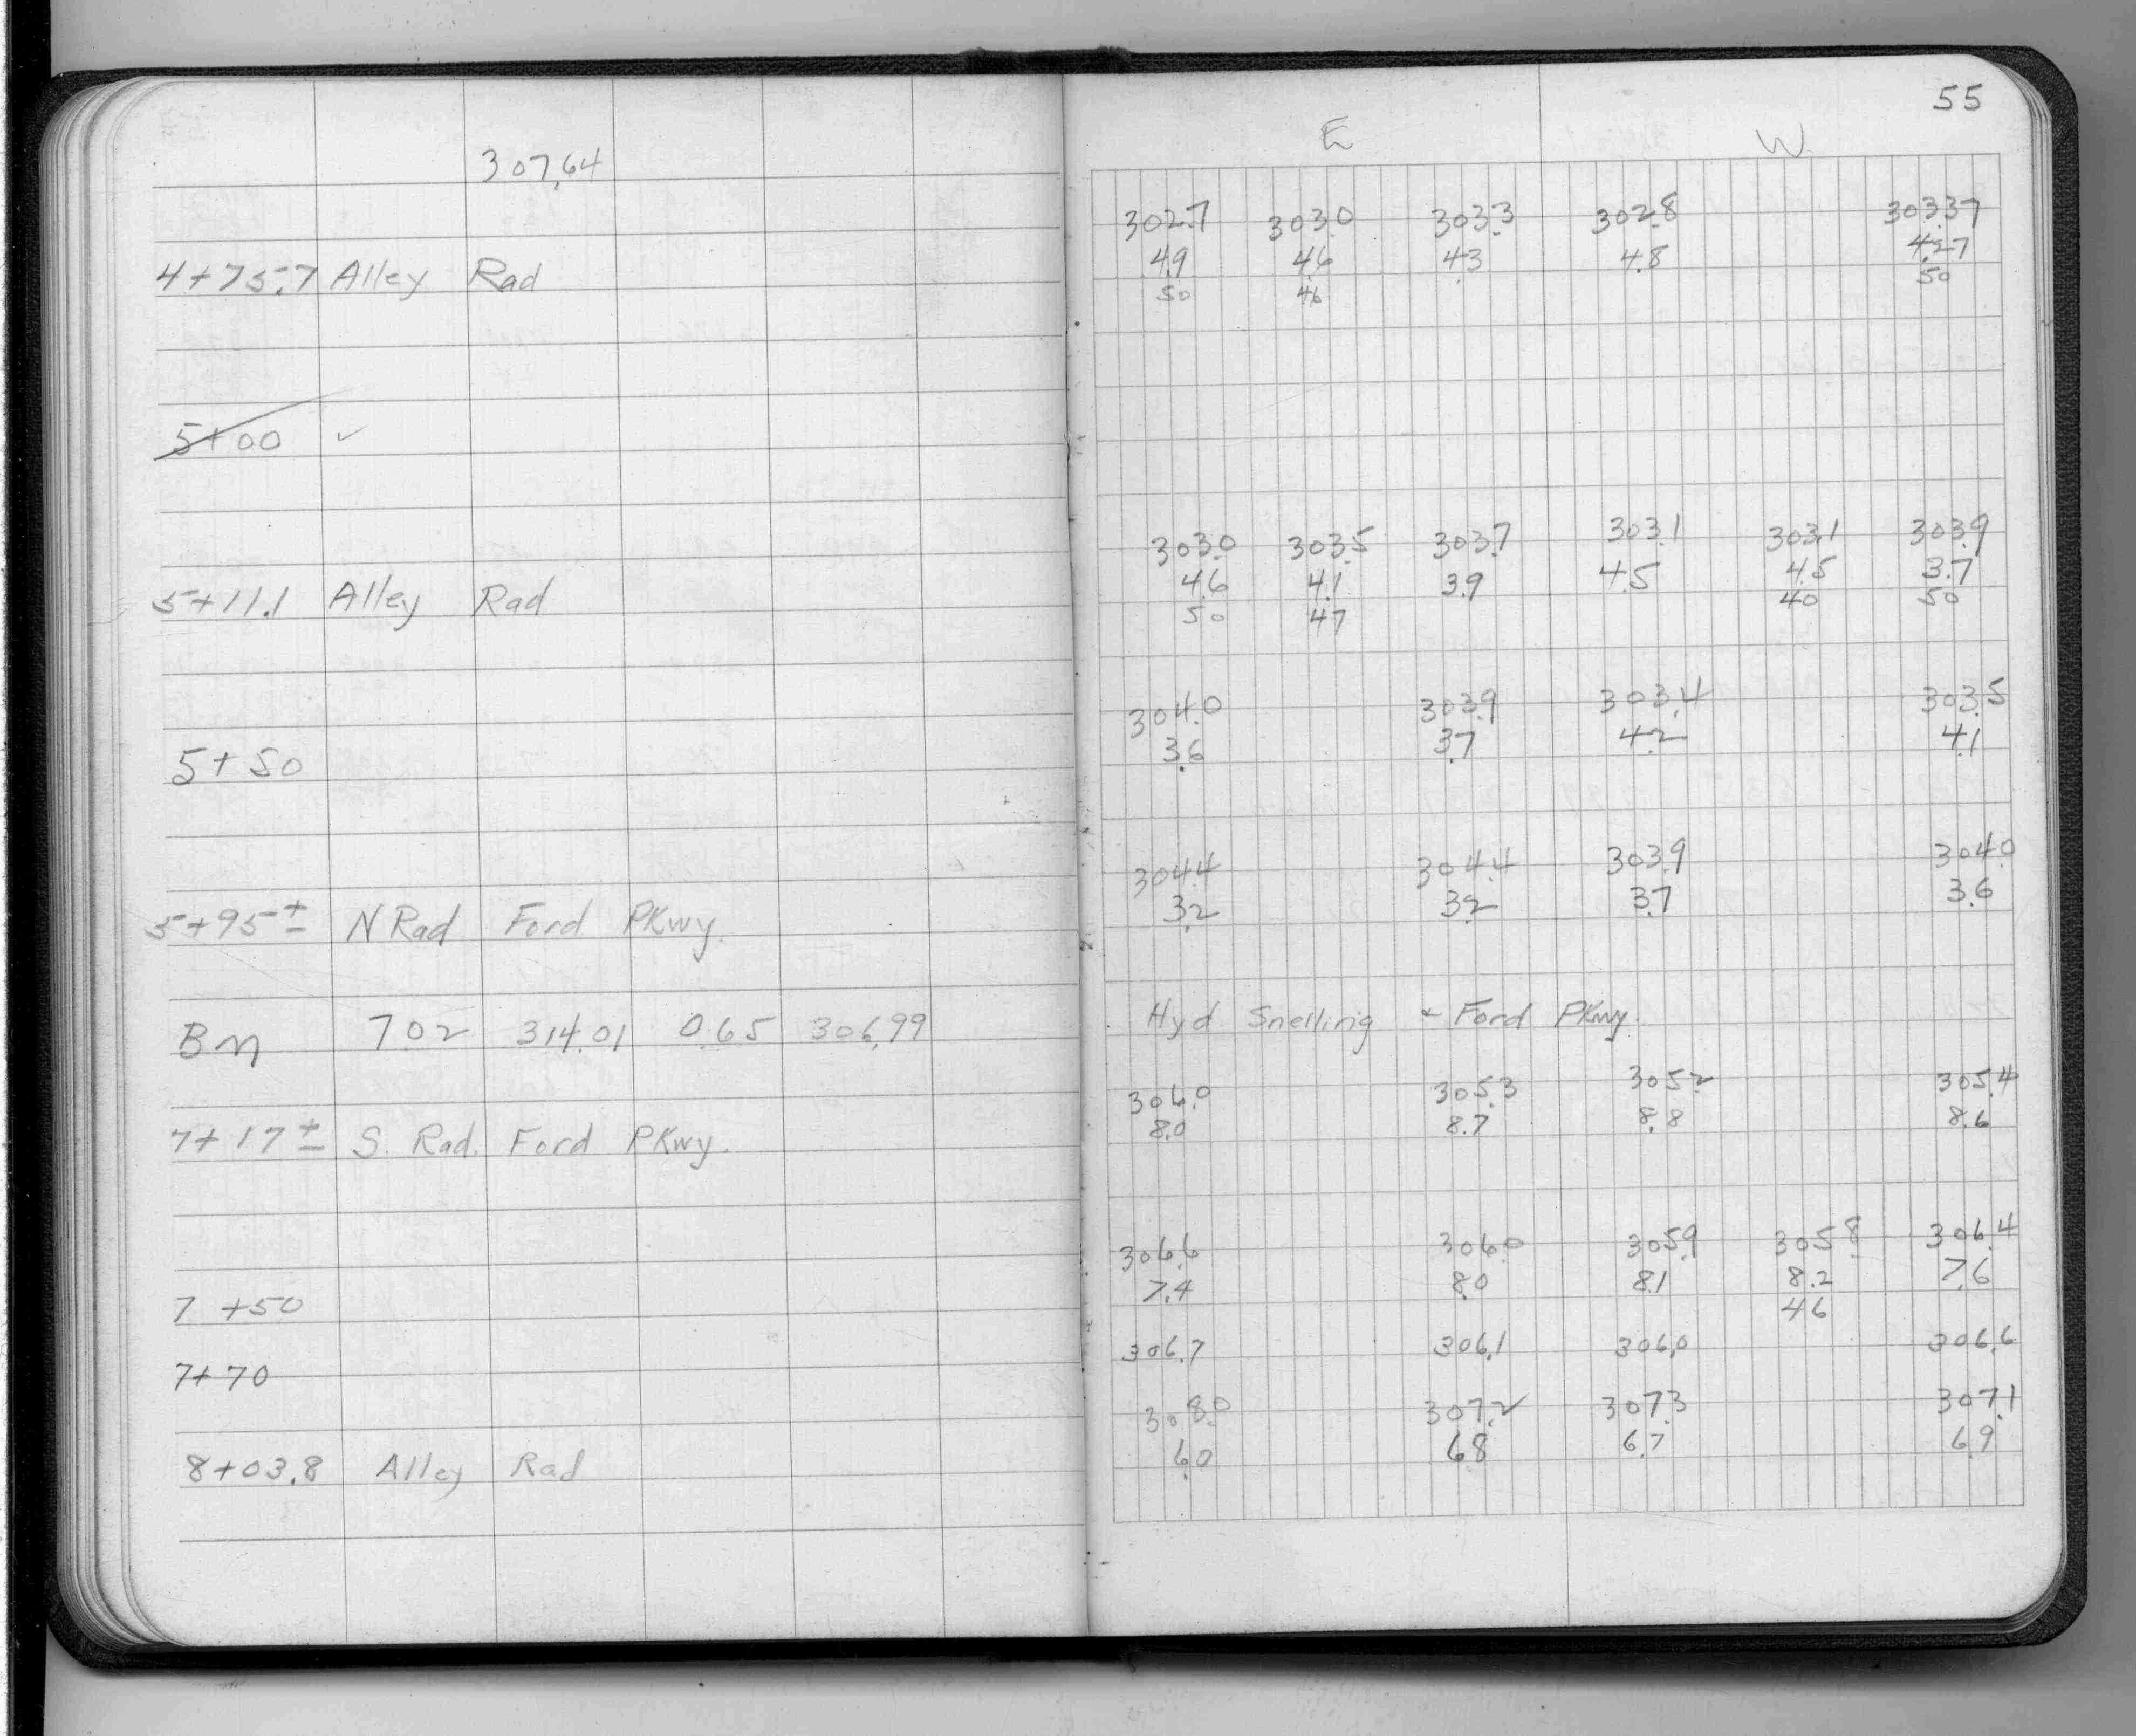 307.64
4+75.7 Alley Rad
5+00 ✓
5+11.1 Alley Rad
5+50
5+95± N Rad Ford PKwy.
BM 7.02 314.01 0.65 306.99
7+17± S. Rad. Ford PKwy.
7+50
7+70
8+03.8 Alley Rad
55
E W
302.7 303.0 303.3 302.8 303.37
4.9 4.6 4.3 4.8 4.27
50 46 50
303.0 303.5 303.7 303.1 303.1 303.9
4.6 4.1 3.9 4.5 4.5 3.7
50 47 40 50
304.0 303.9 303.4 303.5
3.6 3.7 4.2 4.1
304.4 304.4 303.9 304.0
3.2 3.2 3.7 3.6
Hyd Snelling & Ford PKwy.
306.0 305.3 305.2 305.4
8.0 8.7 8.8 8.6
306.6 306.0 305.9 305.8 306.4
7.4 8.0 8.1 8.2 7.6
46
306.7 306.1 306.0 306.6
308.0 307.2 307.3 307.1
6.0 6.8 6.7 6.9